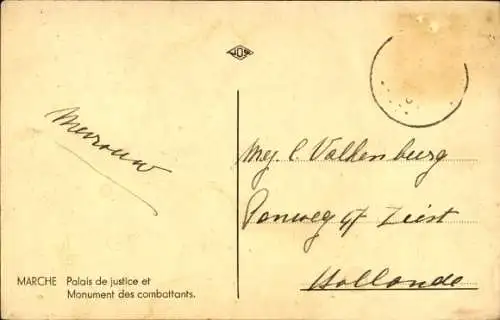 JOS
Mevrouw
Mej. C. Valkenburg
Panweg 47 Zeist
Hollande
MARCHE Palais de justice et
Monument des combattants.